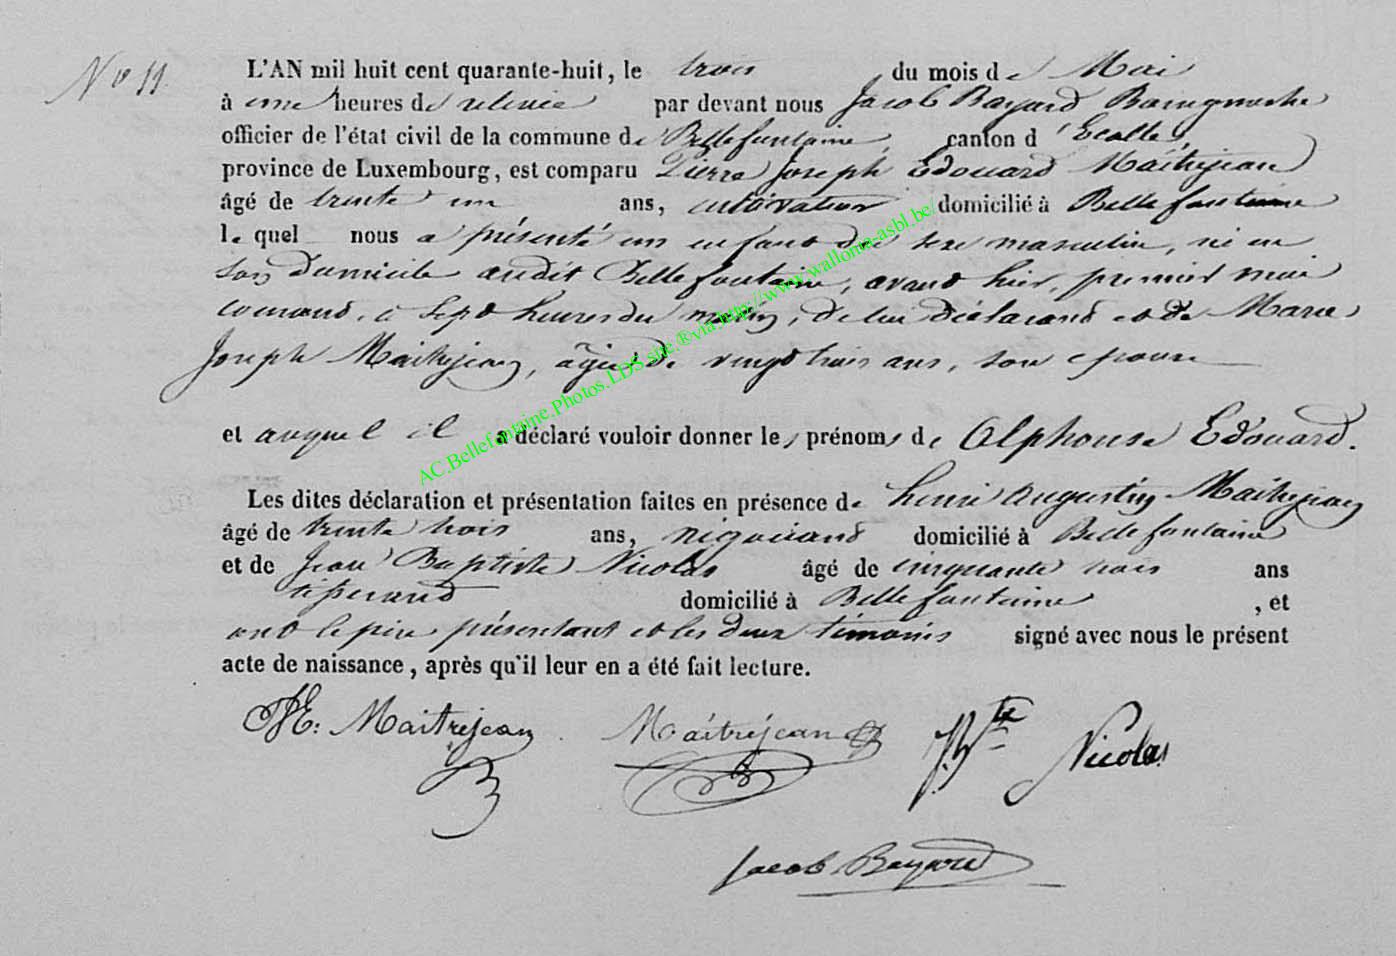 No 11
L'AN mil huit cent quarante-huit, le trois du mois de Mai
à une heures de relevée par devant nous Jacob Bayard Bourgmestre
officier de l'état civil de la commune de Bellefontaine, canton d'Etalle,
province de Luxembourg, est comparu Pierre Joseph Edouard Maitrejean
âgé de trente un ans, cultivateur domicilié à Bellefontaine
le quel nous a présenté un enfant du sexe masculin, né en
son domicile audit Bellefontaine, avant hier, premier mai
courant, à sept heures du matin, de lui déclarant et de Marie
Joseph Maitrejean, âgée de vingt trois ans, son epouse
et auquel il a déclaré vouloir donner les prénoms de Alphonse Edouard.
Les dites déclaration et présentation faites en présence de henri Augustin Maitrejean
âgé de trente trois ans, négociant domicilié à Bellefontaine
et de Jean Baptiste Nicolas âgé de cinquante trois ans
tisserand domicilié à Bellefontaine, et
ont le père présentant et les deux témoins signé avec nous le présent
acte de naissance, après qu'il leur en a été fait lecture.
PJE: Maitrejean Maitrejean J. Bte Nicolas
Jacob Bayard
AC.Bellefontaine.Photos.LDS.site.®via.http://www.wallonia-asbl.be/